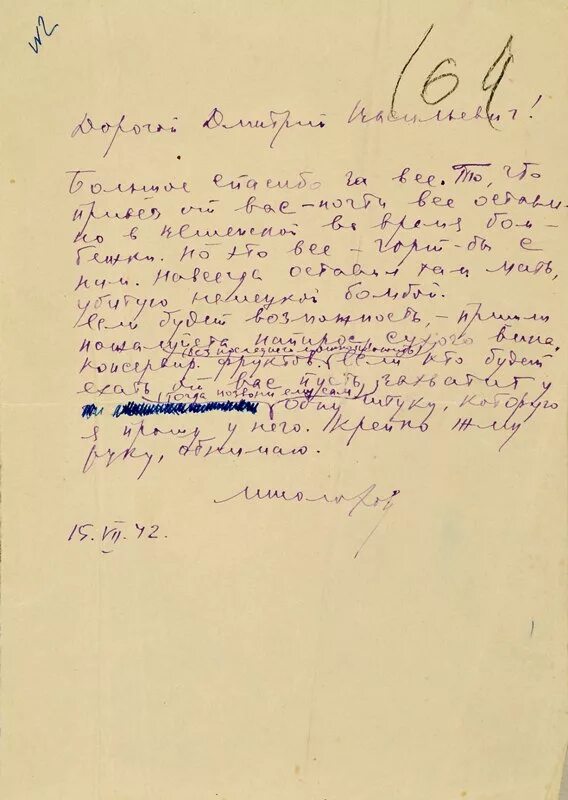 №2
164
Дорогой Дмитрий Васильевич!
Большое спасибо за все. То, что
привез от вас – почти все оставле-
но в во время бом-
бежки. Но это все – горя бы с
ним. Навсегда оставил там мать,
убитую немецкой бомбой.
Если будет возможность, – пришли
пожалуйста папирос, сухого вина,
(без последнего можно)
консервир. фруктов. Если кто будет
ехать от вас, пусть захватит у
(тогда позвони ему сам) одну штуку, которую
я прошу у него. Крепко жму
руку, обнимаю.
МШолохов
15.VII.42.